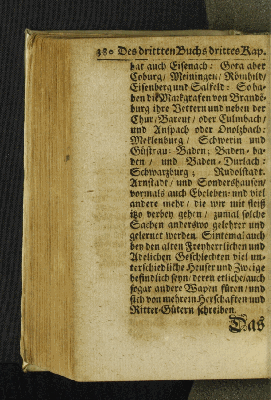 380 Des dritten Buchs drittes Kap.
hat auch Eisenach: Gota aber
Coburg/ Meiningen/ Römhild/
Eisenberg und Salfeld: So ha-
ben die Markgrafen von Brande-
burg ihre Vettern und neben der
Chur/ Bareut/ oder Culmbach/
und Anspach oder Onolzbach:
Meklenburg/ Schwerin und
Güstrau: Baden; Baden-ba-
den/ und Baden-Durlach:
Schwarzburg; Rudolstadt.
Arnstadt/ und Sondershausen/
vormals auch Ebeleben: und viel
andere mehr/ die wir mit fleiß
itzo vorbey gehen/ zumal solche
Sachen anderswo gelehret und
gelernet werden. Sintemal auch
bey den alten Freyherrlichen und
Adelichen Geschlechten viel un-
terschiedliche Heuser und Zweige
befindlich seyn/ deren etliche/ auch
sogar andere Wapen füren/ und
sich von mehrern Herschaften und
Ritter-Gütern schreiben.
Das